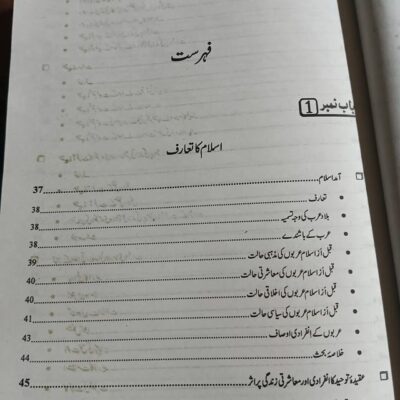 فہرست
باب نمبر 1
اسلام کا تعارف
آمد اسلام 37
تعارف 38
بلاد عرب کی وجہ تسمیہ 38
عرب کے باشندے 38
قبل از اسلام عربوں کی مذہبی حالت 39
قبل از اسلام عربوں کی معاشرتی حالت 40
قبل از اسلام عربوں کی اخلاقی حالت 40
قبل از اسلام عربوں کی سیاسی حالت 41
عربوں کے انفرادی اوصاف 43
خلاصہ بحث 44
عقیدۂ توحید کا انفرادی اور معاشرتی زندگی پر اثر 45